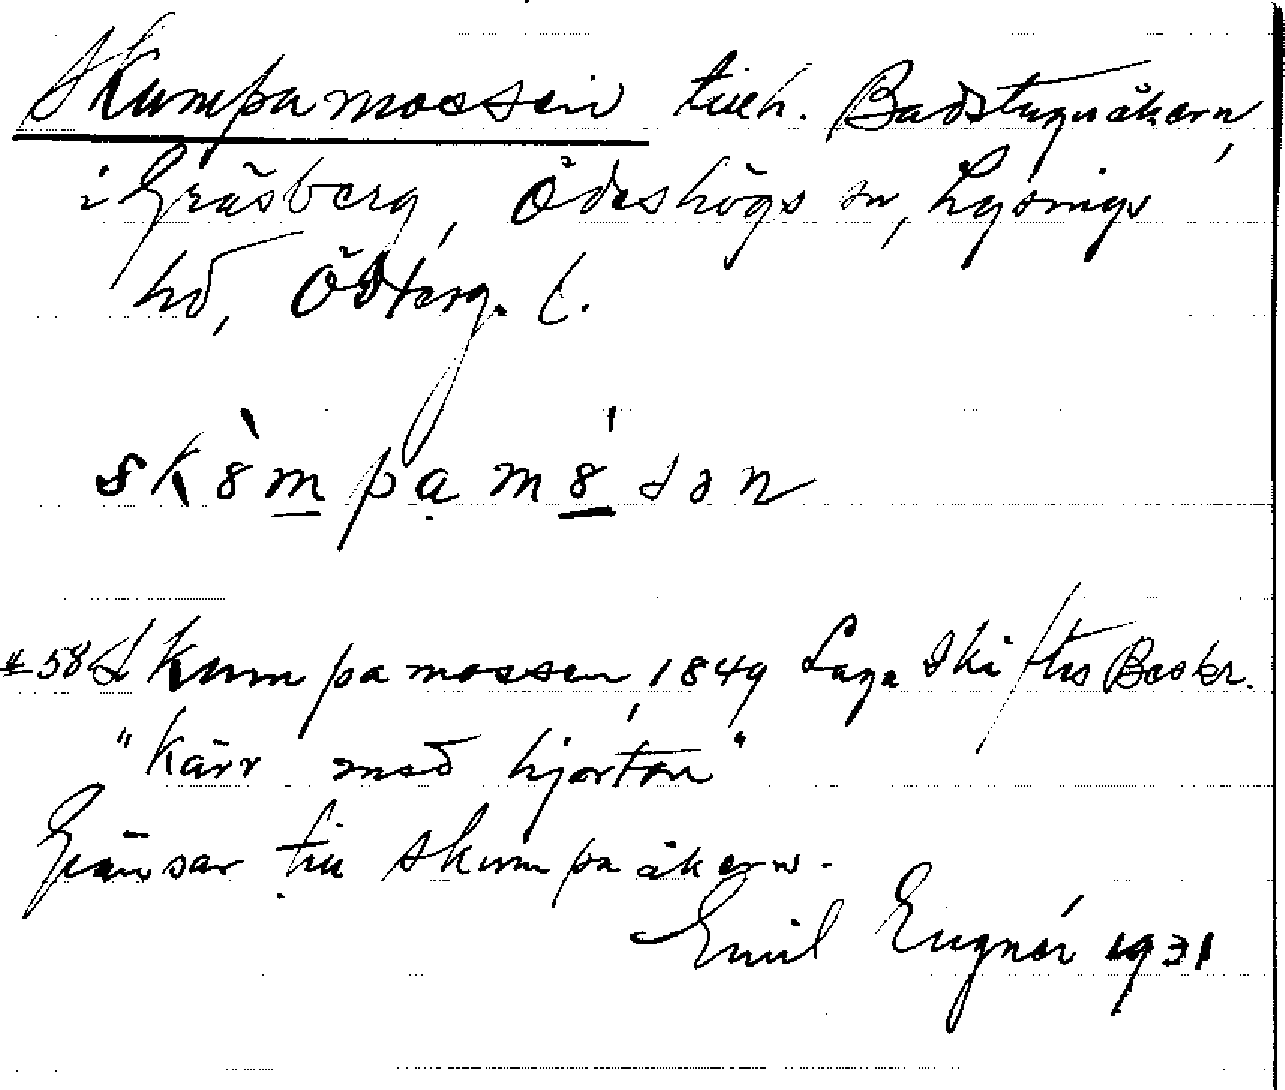 Skumpamossen tillh. Badstuguåkern,
i Gräsberg, Ödeshögs sn, Lysings
hd, Österg. l.
sk8̀mpạm8́sən
#58 Skumpamossen, 1849 Laga Skiftes Beskr.
"Kärr med hjorton"
Gränsar till Skumpaåkern.
Emil Engnér 1931